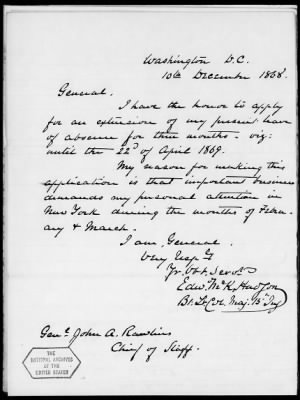 Washington D.C.
10th December 1868.
General.
I have the honor to apply
for an extension of my present leave
of absence for three months - viz:
until the 22d of April 1869.
My reason for making this
application is that important business
demands my personal attention in
New York during the months of Febru-
ary & March.
I am, General
Very Resp'y
Yr. Obt. Servt.
Edw. McK. Hudson
Bt. Lt Col. Maj. Inf
Genl. John A. Rawlins
Chief of Staff.
THE
NATIONAL ARCHIVES
OF THE
UNITED STATES